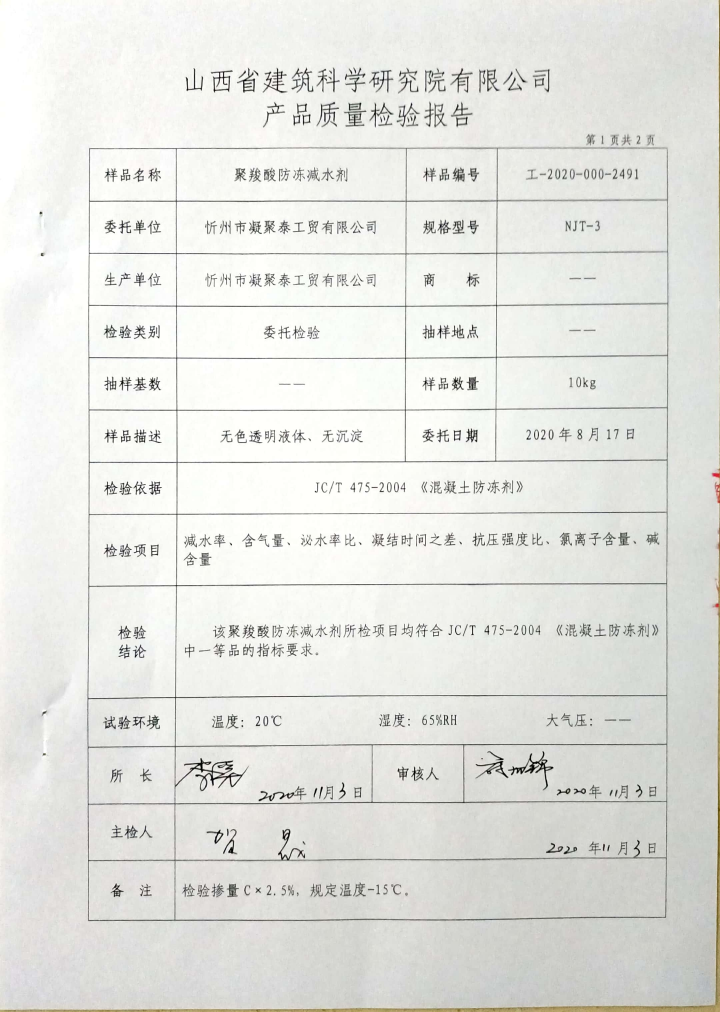 山西省建筑科学研究院有限公司
产品质量检验报告
第1页共2页
样品名称 聚羧酸防冻减水剂 样品编号 工-2020-000-2491
委托单位 忻州市凝聚泰工贸有限公司 规格型号 NJT-3
生产单位 忻州市凝聚泰工贸有限公司 商 标 ——
检验类别 委托检验 抽样地点 ——
抽样基数 —— 样品数量 10kg
样品描述 无色透明液体、无沉淀 委托日期 2020年8月17日
检验依据 JC/T 475-2004 《混凝土防冻剂》
检验项目 减水率、含气量、泌水率比、凝结时间之差、抗压强度比、氯离子含量、碱
含量
检验
结论
该聚羧酸防冻减水剂所检项目均符合JC/T 475-2004 《混凝土防冻剂》
中一等品的指标要求。
试验环境 温度：20℃ 湿度：65%RH 大气压：——
所 长 2020年11月3日 审核人 2020年11月3日
主检人 2020年11月3日
备 注 检验掺量C×2.5%，规定温度-15℃。